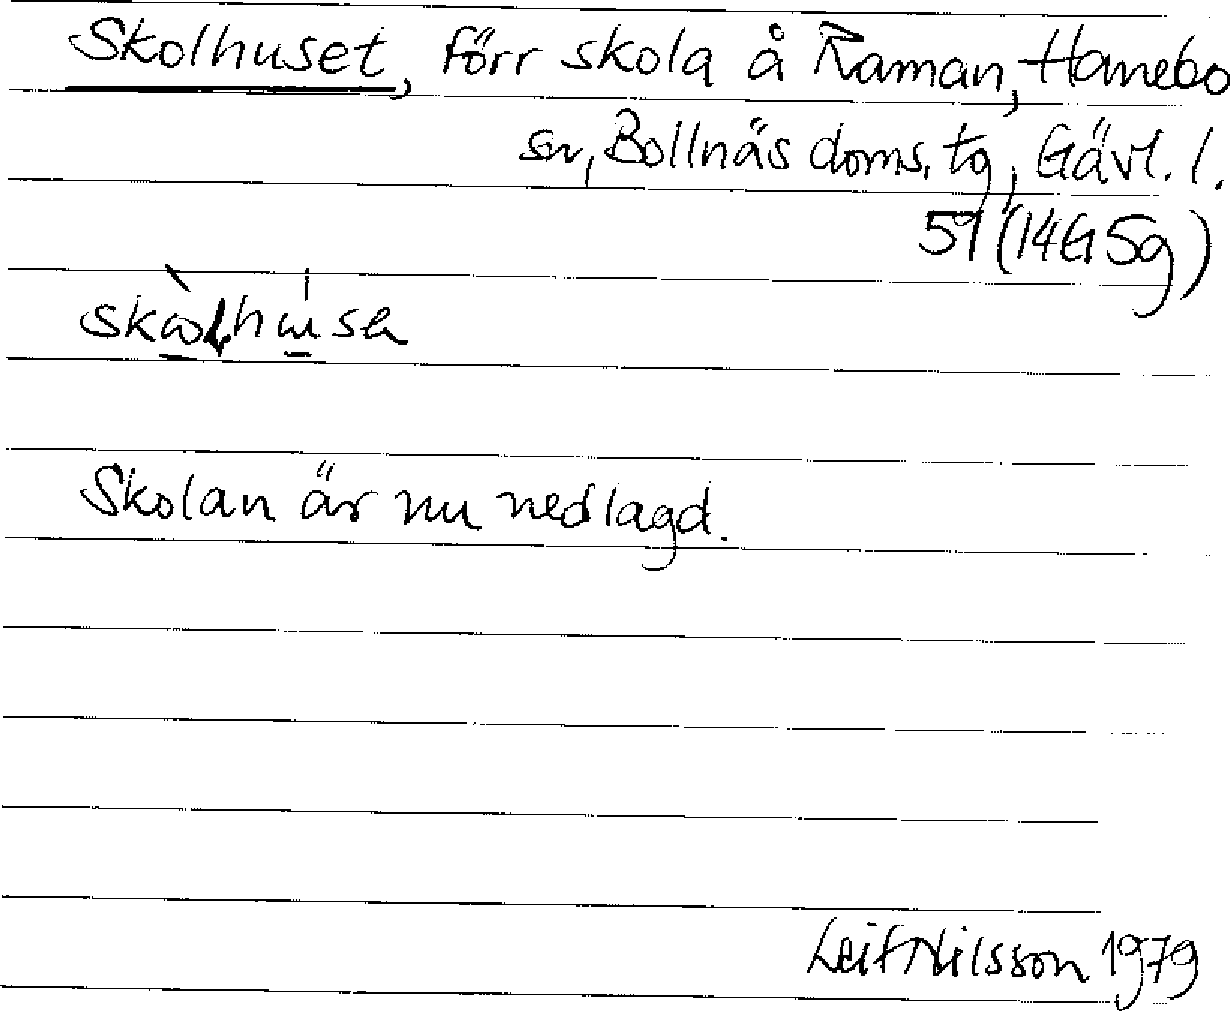 Skolhuset, förr skola å Raman, Hanebo
sn, Bollnäs doms. tg, Gävl. l.
59 (14G 5g)
Skolan är nu nedlagd.
Leif Nilsson 1979